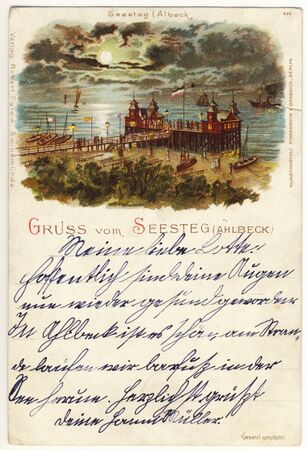 Seesteg (Ahlbeck)
635
Verlag Robert Peters, Swinemünde
KUNSTANSTALT FINKENRATH & GRASNICK, BERLIN
GRUSS vom SEESTEG (AHLBECK)
Meine liebe Lotte
hoffentlich sind deine Augen
nun wieder gesund geworden
In Ahlbeck ist es schön, am Stran-
de laufen wir barfuß in der
See herum. Herzlichst grüßt
deine Hanni Müller.
Gesetzl. geschützt